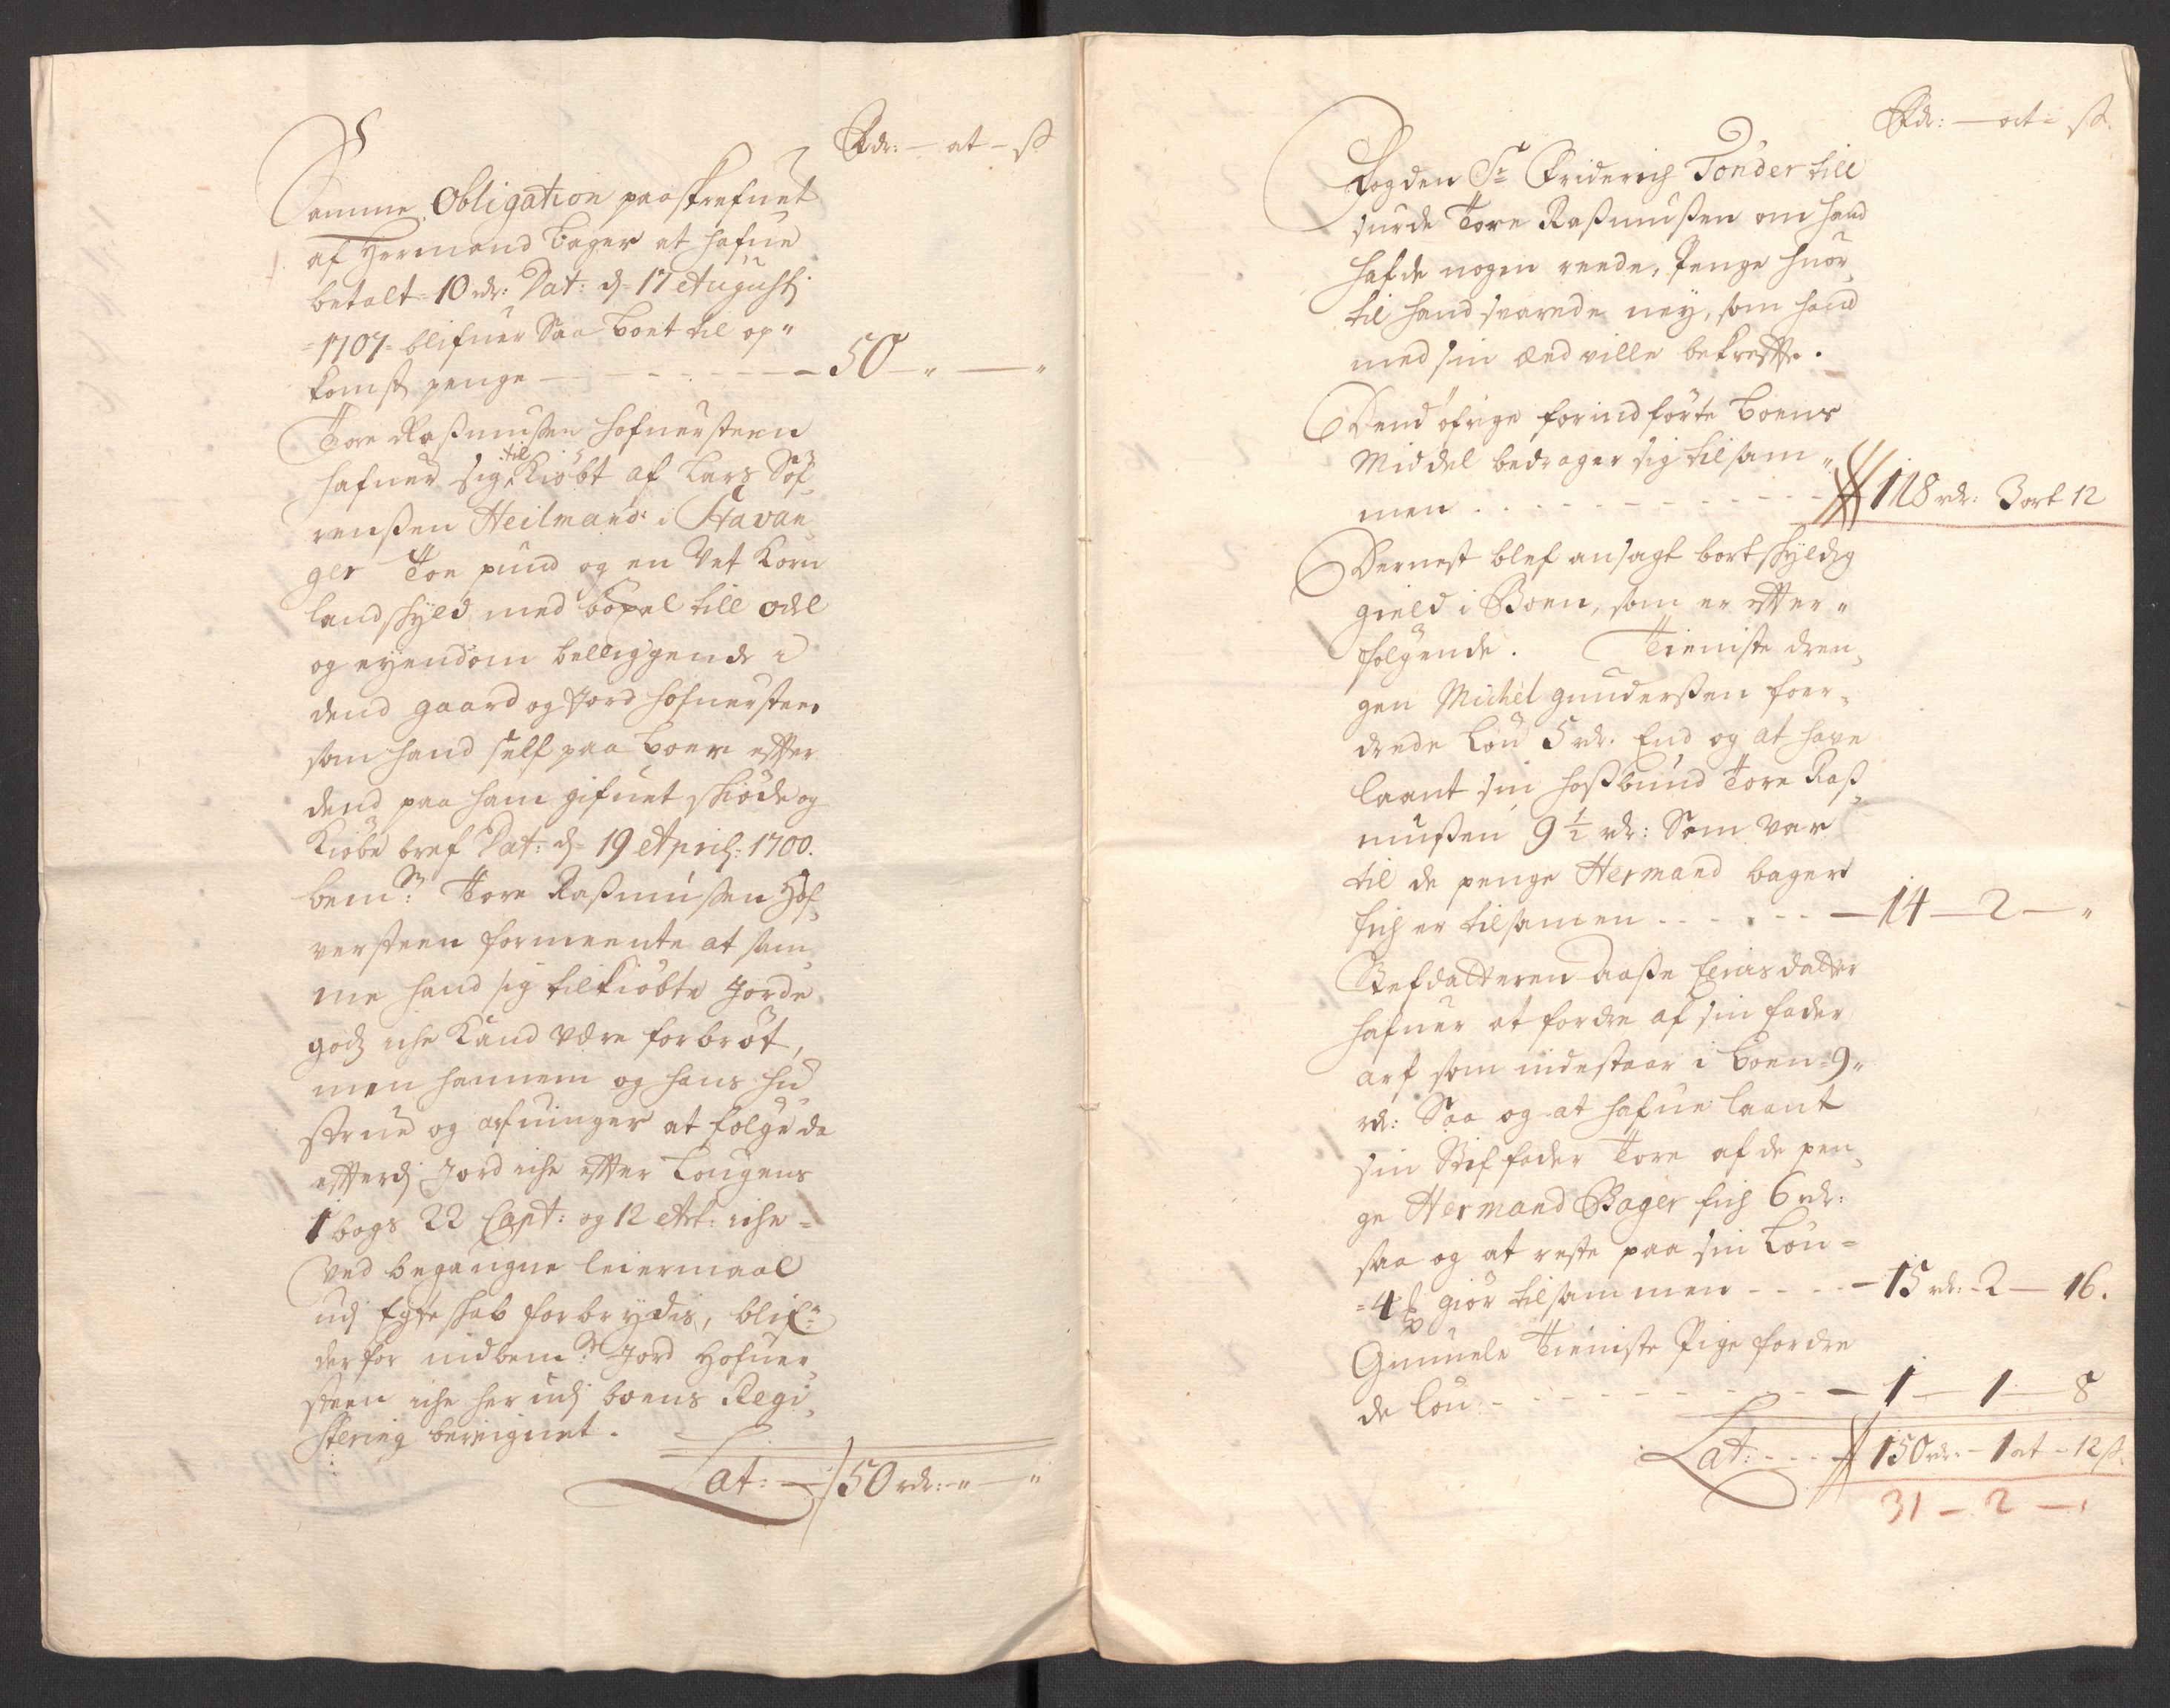 Rdr: — at — ß
Samme Obligation paaskrefuet
af Hermand bager at hafue
betalt 10 rdr: Dat: d: 17 Augusti
1707 blifuer Saa boet til op"
komst penge — 50 — " — "
Tore Rasmussen Hofuersteen
hafuer sig til Kiöbt af Lars Söf
renßen Heilmand i Stavan
ger Toe pund og en Vet Korn
landskyld med böxel till odel
og eyendom belliggende i
dend gaard og Jord Hofuersteen
som hand self paa boer efter
dend paa ham gifuet skiöde og
Kiöbe bref Dat: d: 19 April: 1700.
bemte: Tore Raßmußen Hof
versteen formeente at sam
me hand sig tilkiöbte Jorde
godz iche Kand være forbröt,
men hannem og hans hu
strue og arfuinger at fölge da
efterdj Jord iche efter Lougens
1 bogs 22 Capt: og 12 Art: iche
Ved begangne leiermaal
udj Egteskab forbrydis, blifr
derfor indbemte Jord Hofuer
steen iche her udj boens Regi
stering bereignet.
Lat: — 50 rdr: " — "
Rdr: — at — ß.
Fogden Sr Friderich Tönder till
spurde Tore Raßmußen om hand
hafde nogen reede Penge huor
til hand svarede ney, som hand
med sin æd ville bekrefte.
Dend öfrige forindförte boens
Middel bedrager sig tilsam"
men - - - - 118 rdr: 3 ort 12
Dernest blef ansagt bortskyldig
gield i Boen, som er efter"
fölgende. Tieniste dren
gen Michel gunderßen foer
drede lön 5 rdr. End og at have
laant sin hoßbund Tore Raß
mußen 9 1/2 rdr: Som var
til de penge Hermand bager
fich er tilsamen - - - 14 — 2 — "
Stefdatteren Aaße datter
hafuer at fordre af sin fader
arf som indestaar i boen 9"
rd: Saa og at hafue laant
sin Stiffader Tore af de pen
ge Hermand Bager fich 6 rdr:
saa og at reste paa sin Lön
4 giör tilsammen - - - 15 rdr: 2 — 16.
Gunnele Tieniste Pige fordre
de lön - - - 1 — 1 — 8
Lat: - - - 150 rdr: — 1 at — 12 ß.
31 — 2 — "